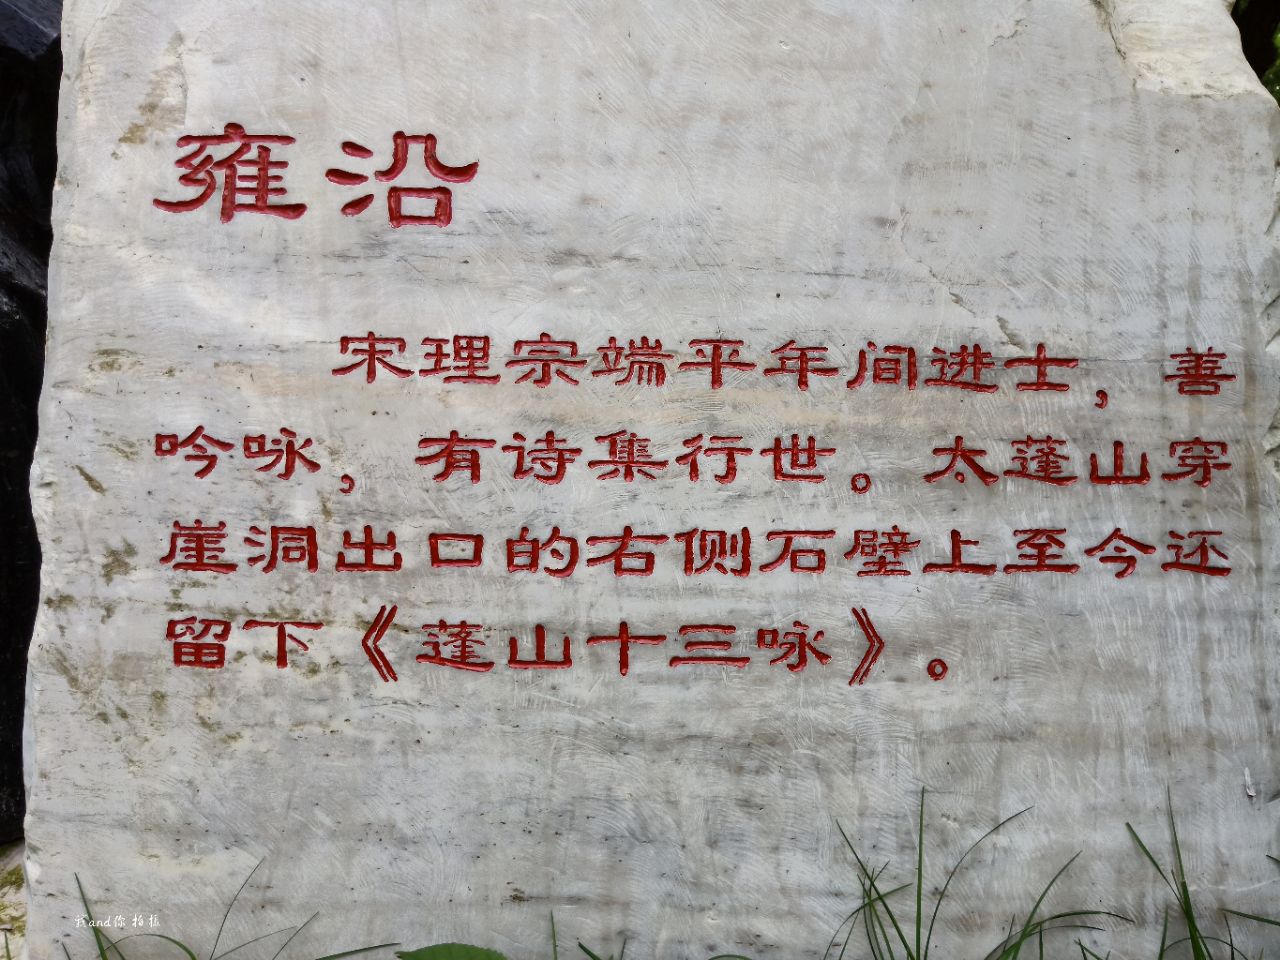 雍沿
宋理宗端平年间进士，善
吟咏，有诗集行世。太蓬山穿
崖洞出口的右侧石壁上至今还
留下《蓬山十三咏》。
我and你 拍摄